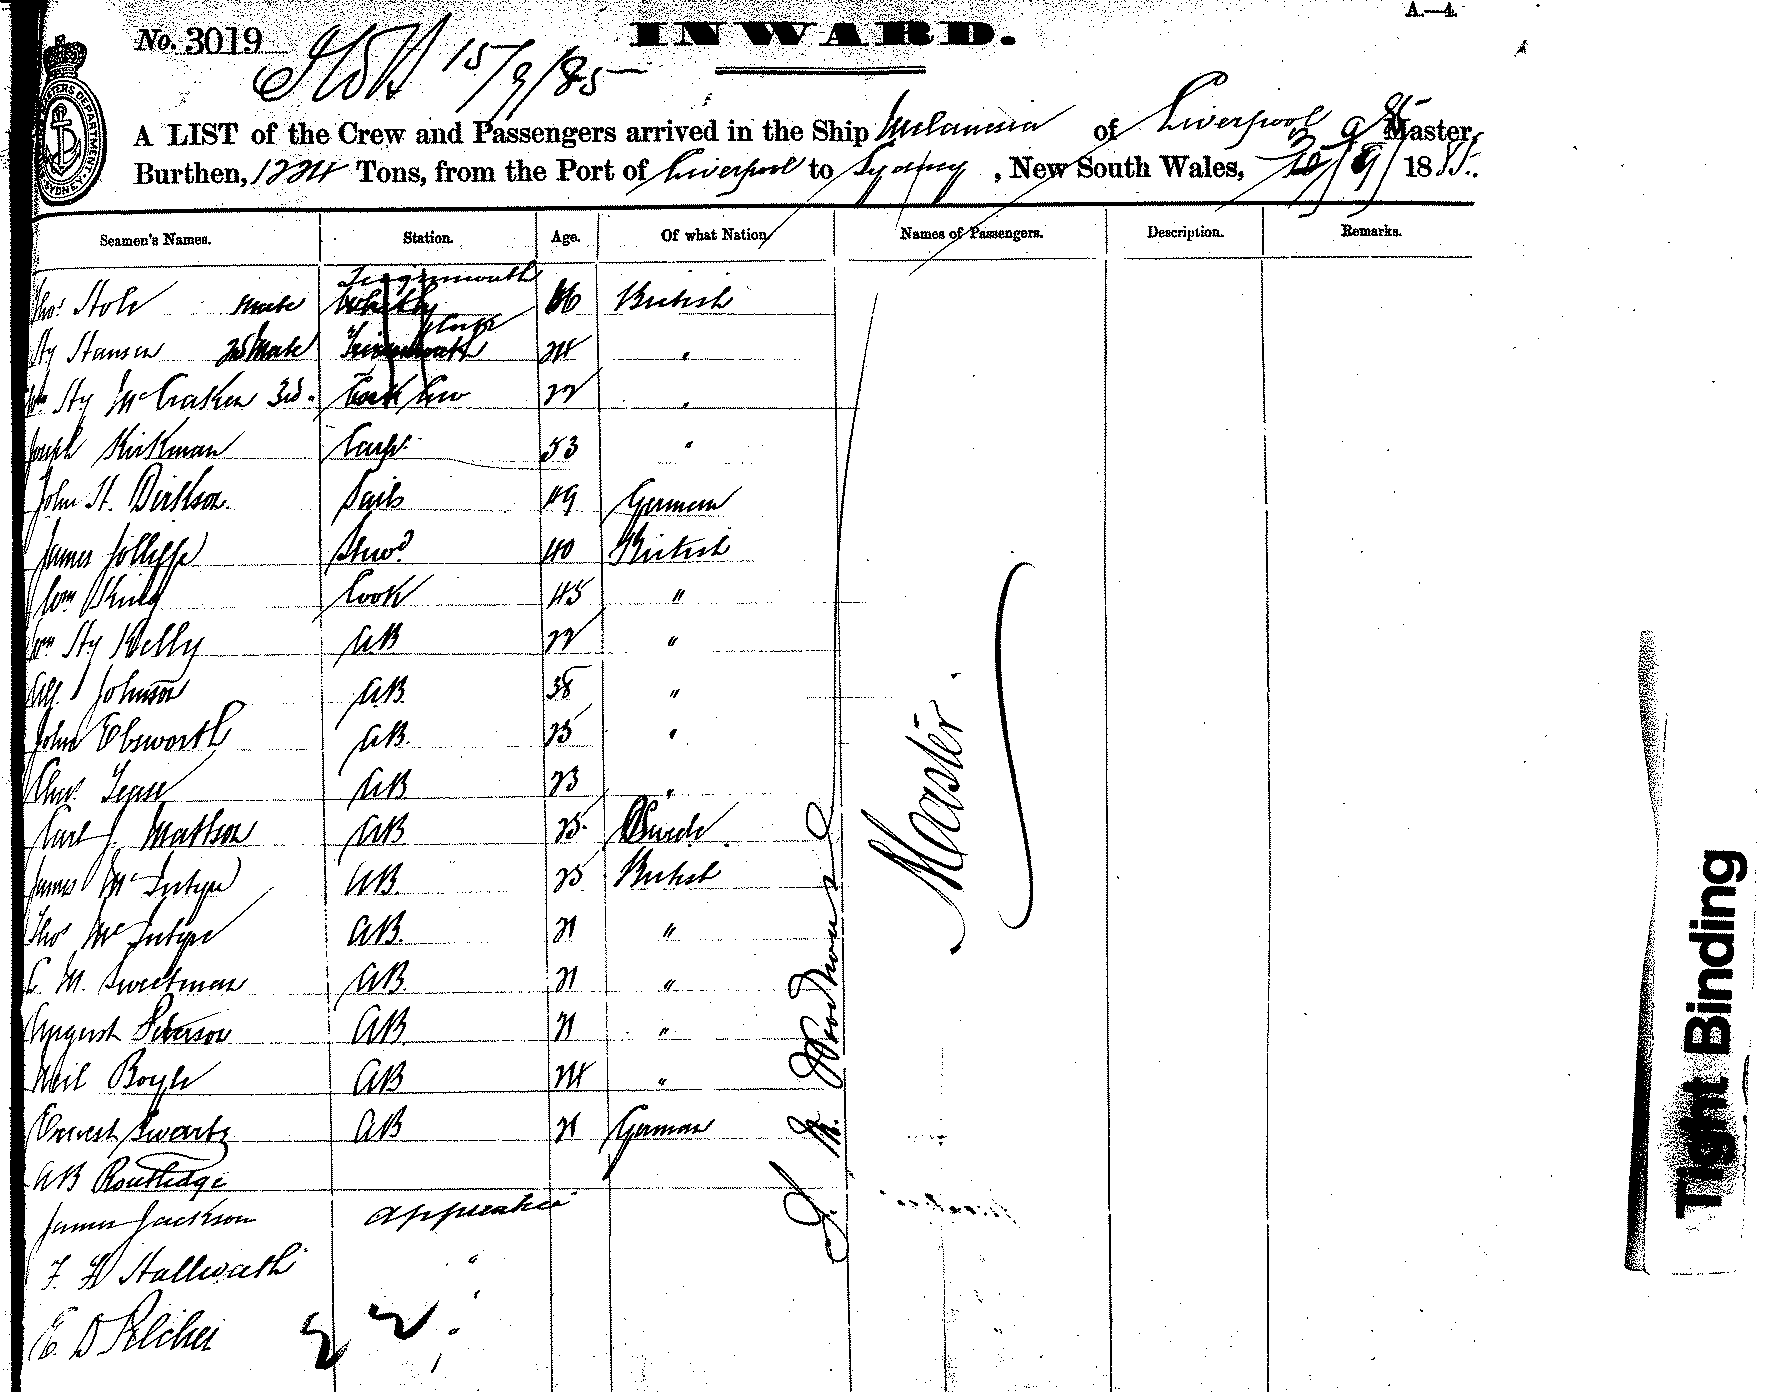 A.—4.
No. 3019
INWARD.
15/9/85
A LIST of the Crew and Passengers arrived in the Ship Melanesia of Liverpool Master,
Burthen, 1224 Tons, from the Port of Liverpool to Sydney, New South Wales, 1885.
Seamen's Names. Station. Age. Of what Nation. Names of Passengers. Description. Remarks.
Thos. Mate British
Hy Hansen 2nd Mate 24 "
Wm Hy McCraken 3rd. 22 "
Joseph Kirkman Carp. 53 "
John H. Dirkson. Sails 49 German
James Jolliffe Stewd 40 British
Wm Cook 45 "
Wm Hy Kelly AB 22 "
Alf. Johnson AB. 38 "
John Ebsworth AB. 25 "
Chas. AB 23 "
Carl J. Mattson AB 25 Swede.
James McIntyre AB. 25 British
Thos McIntyre AB. 21 "
C. M. Sweetman AB 21 "
August Peterson AB 21 "
Neil Boyle AB 24 "
Ernest Swartz AB 21 German
AB Routledge
James Jackson Apprentice
F. H Hallwrath "
E. D Pilcher "
22
Master.
Tight Binding